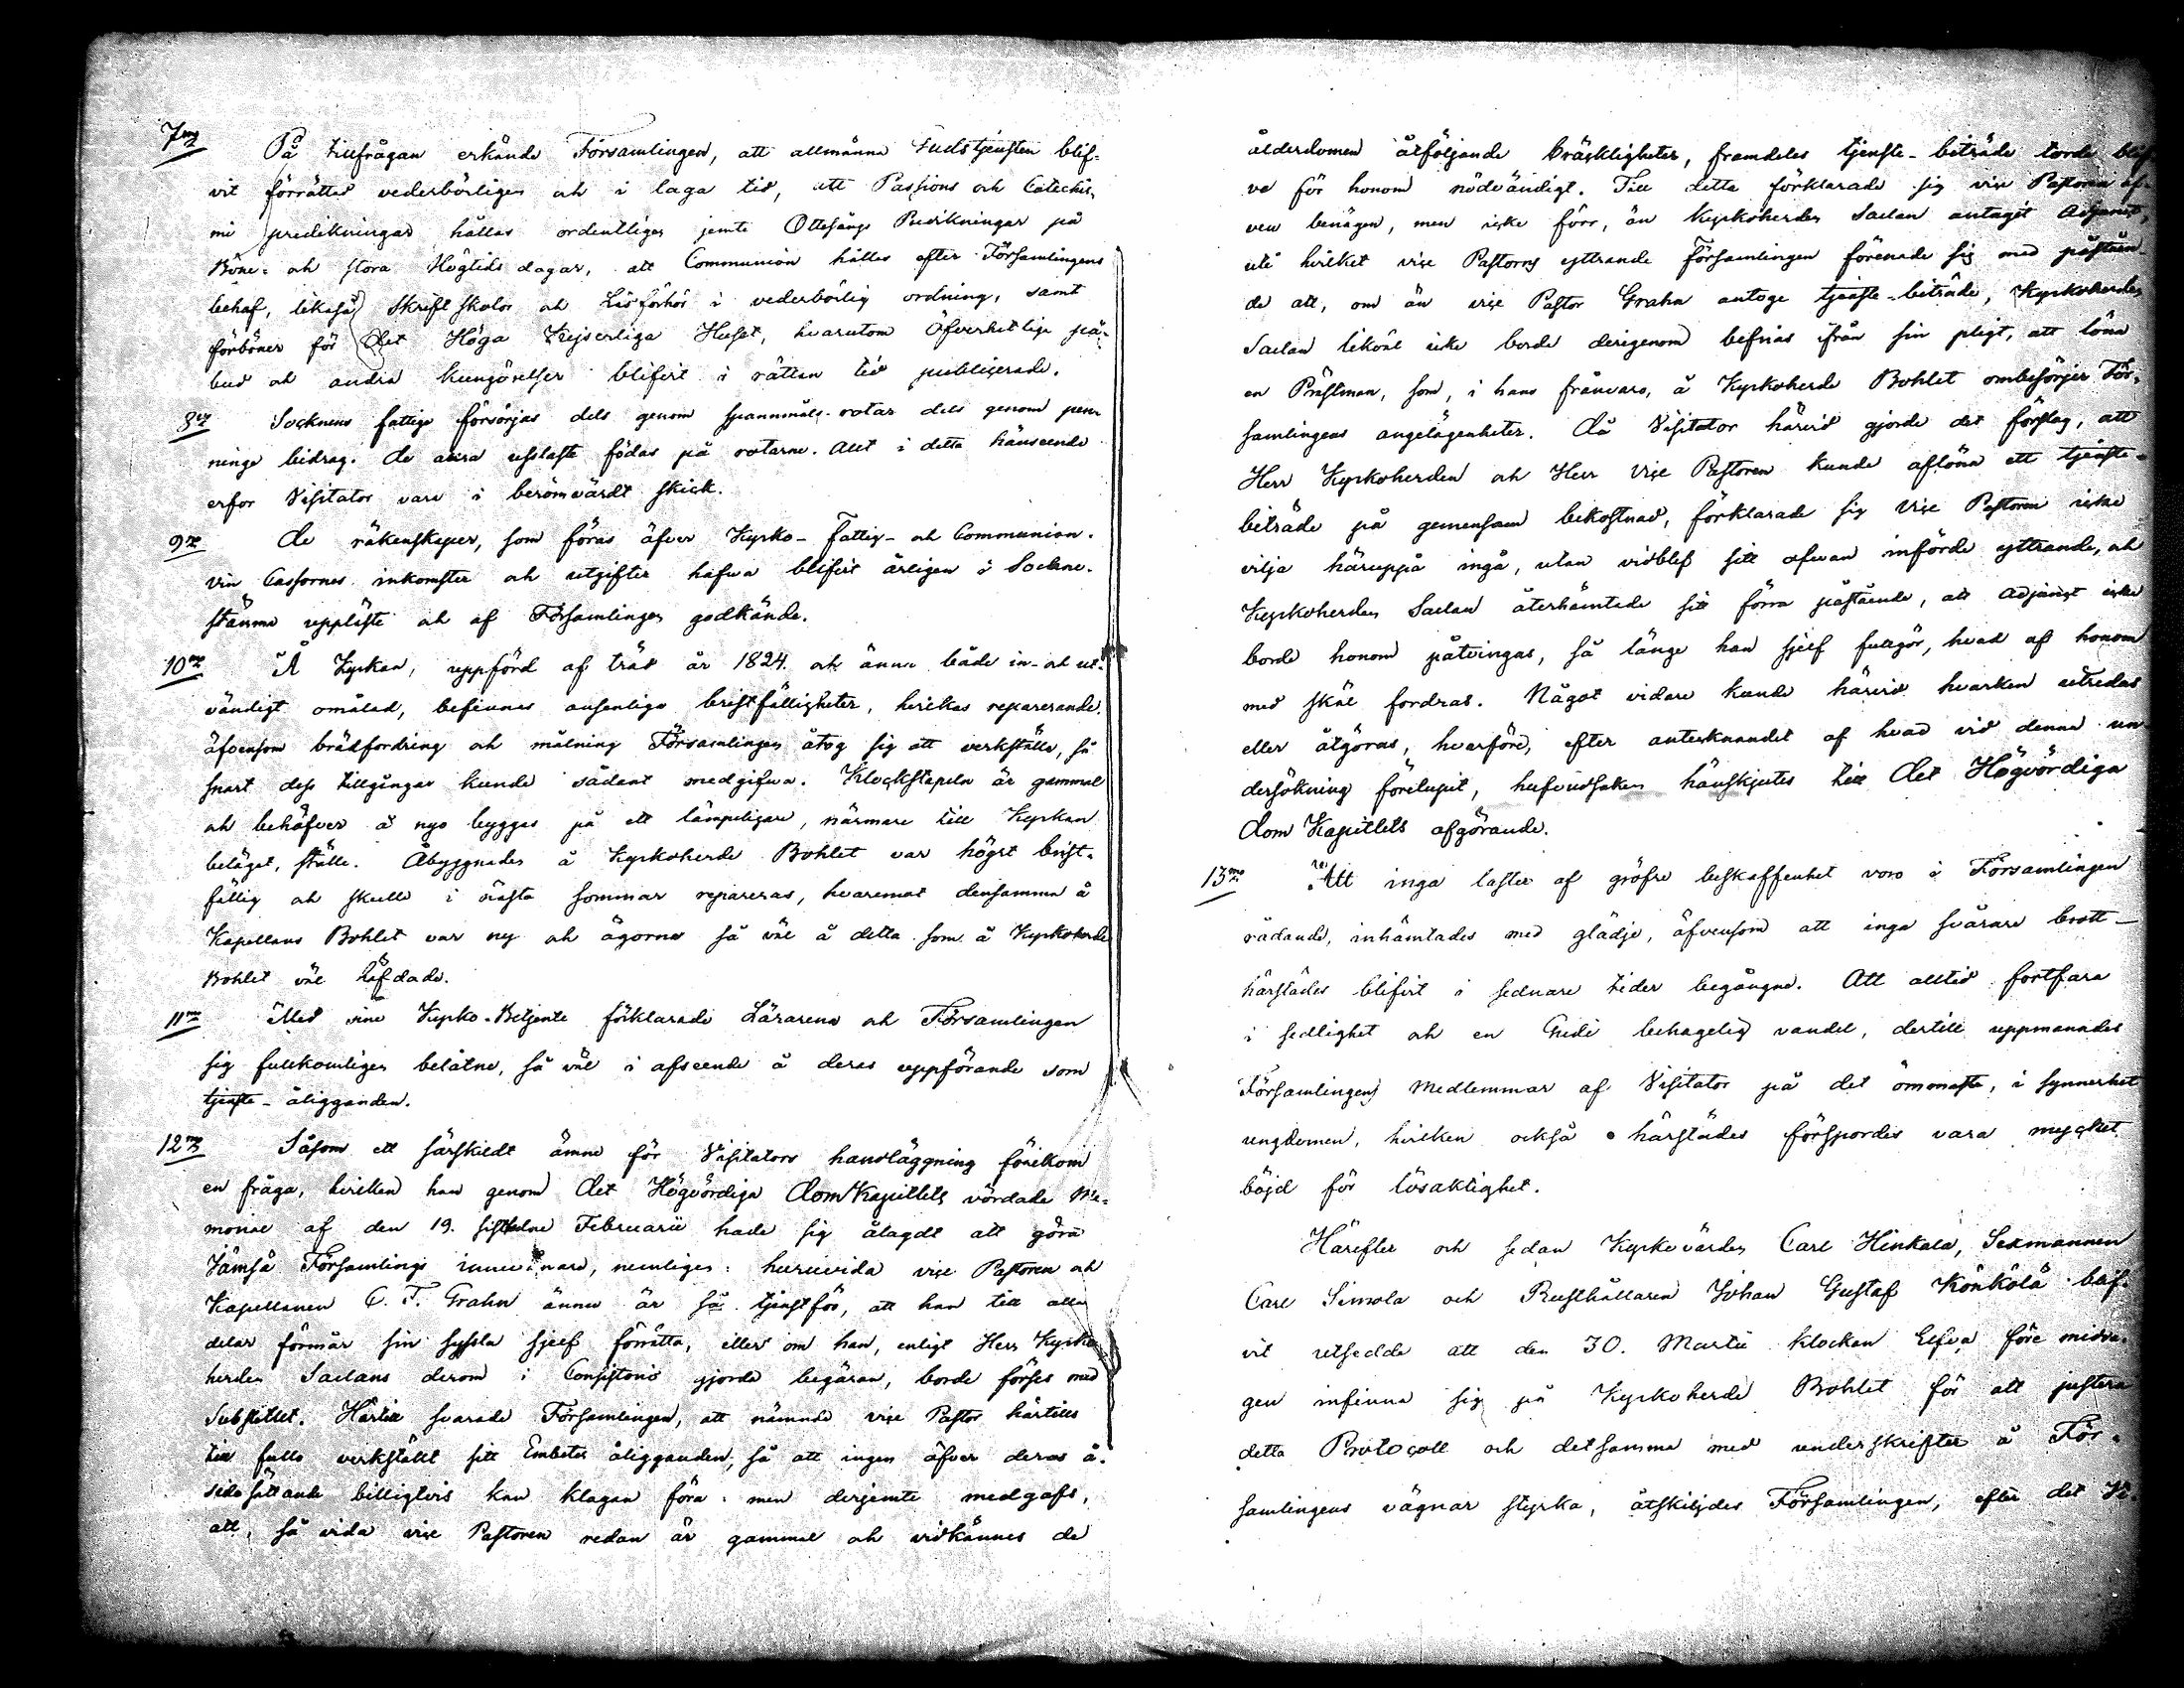 7mo På tillfrågan erkände Församlingen, att allmänna Gudstjensten blif-
vit förrättad vederbörligen och i laga tid, att Passions och Catechis-
mi predikningar hållas ordentligen jemte Ottesångs Predikningar på
Böne- och stora Högtids dagar, att Communion hålles efter Församlingens
behof, likaså Skriftskolor och Läsförhör i vederbörlig ordning, samt
förböner för Det Höga Kejserliga Huset, hvarutom Öfverhetliga på-
bud och andra kungörelser blifvit i rättan tid publicerade.
8vo Socknens fattige försörjas dels genom spannmåls-rotar dels genom pen-
ninge bidrag. De allra uslaste födas på rotarne. Allt i detta hänseende
erfor Visitator vara i berömvärdt skick.
9no De räkenskaper, som föras öfver Kyrko- Fattig- och Communion-
vin Cassornes inkomster och utgifter hafva blifvit årligen i Sockne-
stämma uppläste och af Församlingen godkände.
10mo Å Kyrkan, uppförd af träd år 1824. och ännu både in- och ut-
vändigt omålad, befinnas ansenliga bristfälligheter, hvilkas reparerande,
äfvensom brädfordring och målning Församlingen åtog sig att verkställa, så
snart dess tillgångar kunde sådant medgifva. Klockstapeln är gammal
och behöfver å nyo byggas på ett lämpeligare, närmare till Kyrkan
beläget, ställe. Åbyggnaden å Kyrkoherde Bohlet var högst brist-
fällig och skulle i nästa sommar repareras, hvaremot densamma å
Kapellans Bohlet var ny och ägorna så väl å detta som å Kyrkoherde
Bohlet väl häfdade.
11mo Med sine Kyrko-Betjente förklarade Lärarena och Församlingen
sig fullkomligen belåtne, så väl i afseende å deras uppförande som
tjenste-åligganden.
12mo Såsom ett särskildt ämne för Visitators handläggning förekom
en fråga, hvilken han genom Det Högvördiga DomKapitlets vördade Me-
morial af den 19. sistledne Februarii hade sig ålagdt att göra
Jämsä Församlings innevånare, nemligen: huruvida vice Pastoren och
Kapellanen C. F. Grahn ännu är så tjenstför, att han till alla
delar förmår sin syssla sjelf förrätta, eller om han, enligt Herr Kyrko-
herden Saelans derom i Consistorio gjorde begäran, borde förses med
Substitut. Härtill svarade Församlingen, att nämnde vice Pastor härtills
till fullo verkställt sitt Embetes åligganden, så att ingen öfver deras å-
sidosättande billigtvis kan klagan föra: men derjemte medgafs,
att, så vida vice Pastoren redan är gammal och vidkännes de
ålderdomen åtföljande bräckligheter, framdeles tjenste-biträde torde blif-
va för honom nödvändigt. Till detta förklarade sig vice Pastoren äf-
ven benägen, men icke förr, än Kyrkoherden Saelan antagit Adjunct,
uti hvilket vice Pastorns yttrande Församlingen förenade sig med påståen-
de att, om än vice Pastor Grahn antoge tjenste-biträde, Kyrkoherden
Saelan likväl icke borde derigenom befrias ifrån sin pligt, att löna
en Prästman, som, i hans frånvaro, å Kyrkoherde Bohlet ombesörjer För-
samlingens angelägenheter. Då Visitator härvid gjorde det förslag, att
Herr Kyrkoherden och Herr Vice Pastoren kunde aflöna ett tjenste-
biträde på gemensam bekostnad, förklarade sig Vice Pastoren icke
vilja häruppå ingå, utan vidblef sitt ofvan införde yttrande, och
Kyrkoherden Saelan återhämtade sitt förra påstående, att Adjunct icke
borde honom påtvingas, så länge han sjelf fullgör, hvad af honom
med skäl fordras. Något vidare kunde härvid hvarken utredas
eller åtgöras, hvarföre, efter antecknandet af hvad vid denna un-
dersökning förelupit, hufvudsaken hänskjutes till Det Högvördiga
Dom Kapitlets afgörande.
13mo Att inga laster af gröfre beskaffenhet voro i Församlingen
rådande, inhämtades med glädje, äfvensom att inga svårare brott
härstädes blifvit i sednare tider begångne. Att alltid fortfara
i sedlighet och en Gudi behagelig vandel, dertill uppmanades
Församlingens Medlemmar af Visitator på det ömmaste, i synnerhet
ungdomen, hvilken också härstädes förspordes vara mycket
böjd för lösaktighet.
Härefter och sedan Kyrkovärden Carl Hinkala, Sexmannen
Carl Simola och Rusthållaren Johan Gustaf Könkölä blif-
vit utsedda att den 30. Martii klockan Elfva före midda-
gen infinna sig på Kyrkoherde Bohlet för att justera
detta Protocoll och detsamma med underskrifter å För-
samlingens vägnar styrka, åtskiljdes Församlingen, efter det Vi-